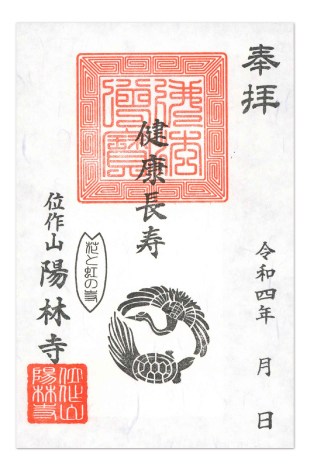 奉拝
健康長寿
令和四年 月 日
花と虹の寺
位作山 陽林寺
位作山陽林寺